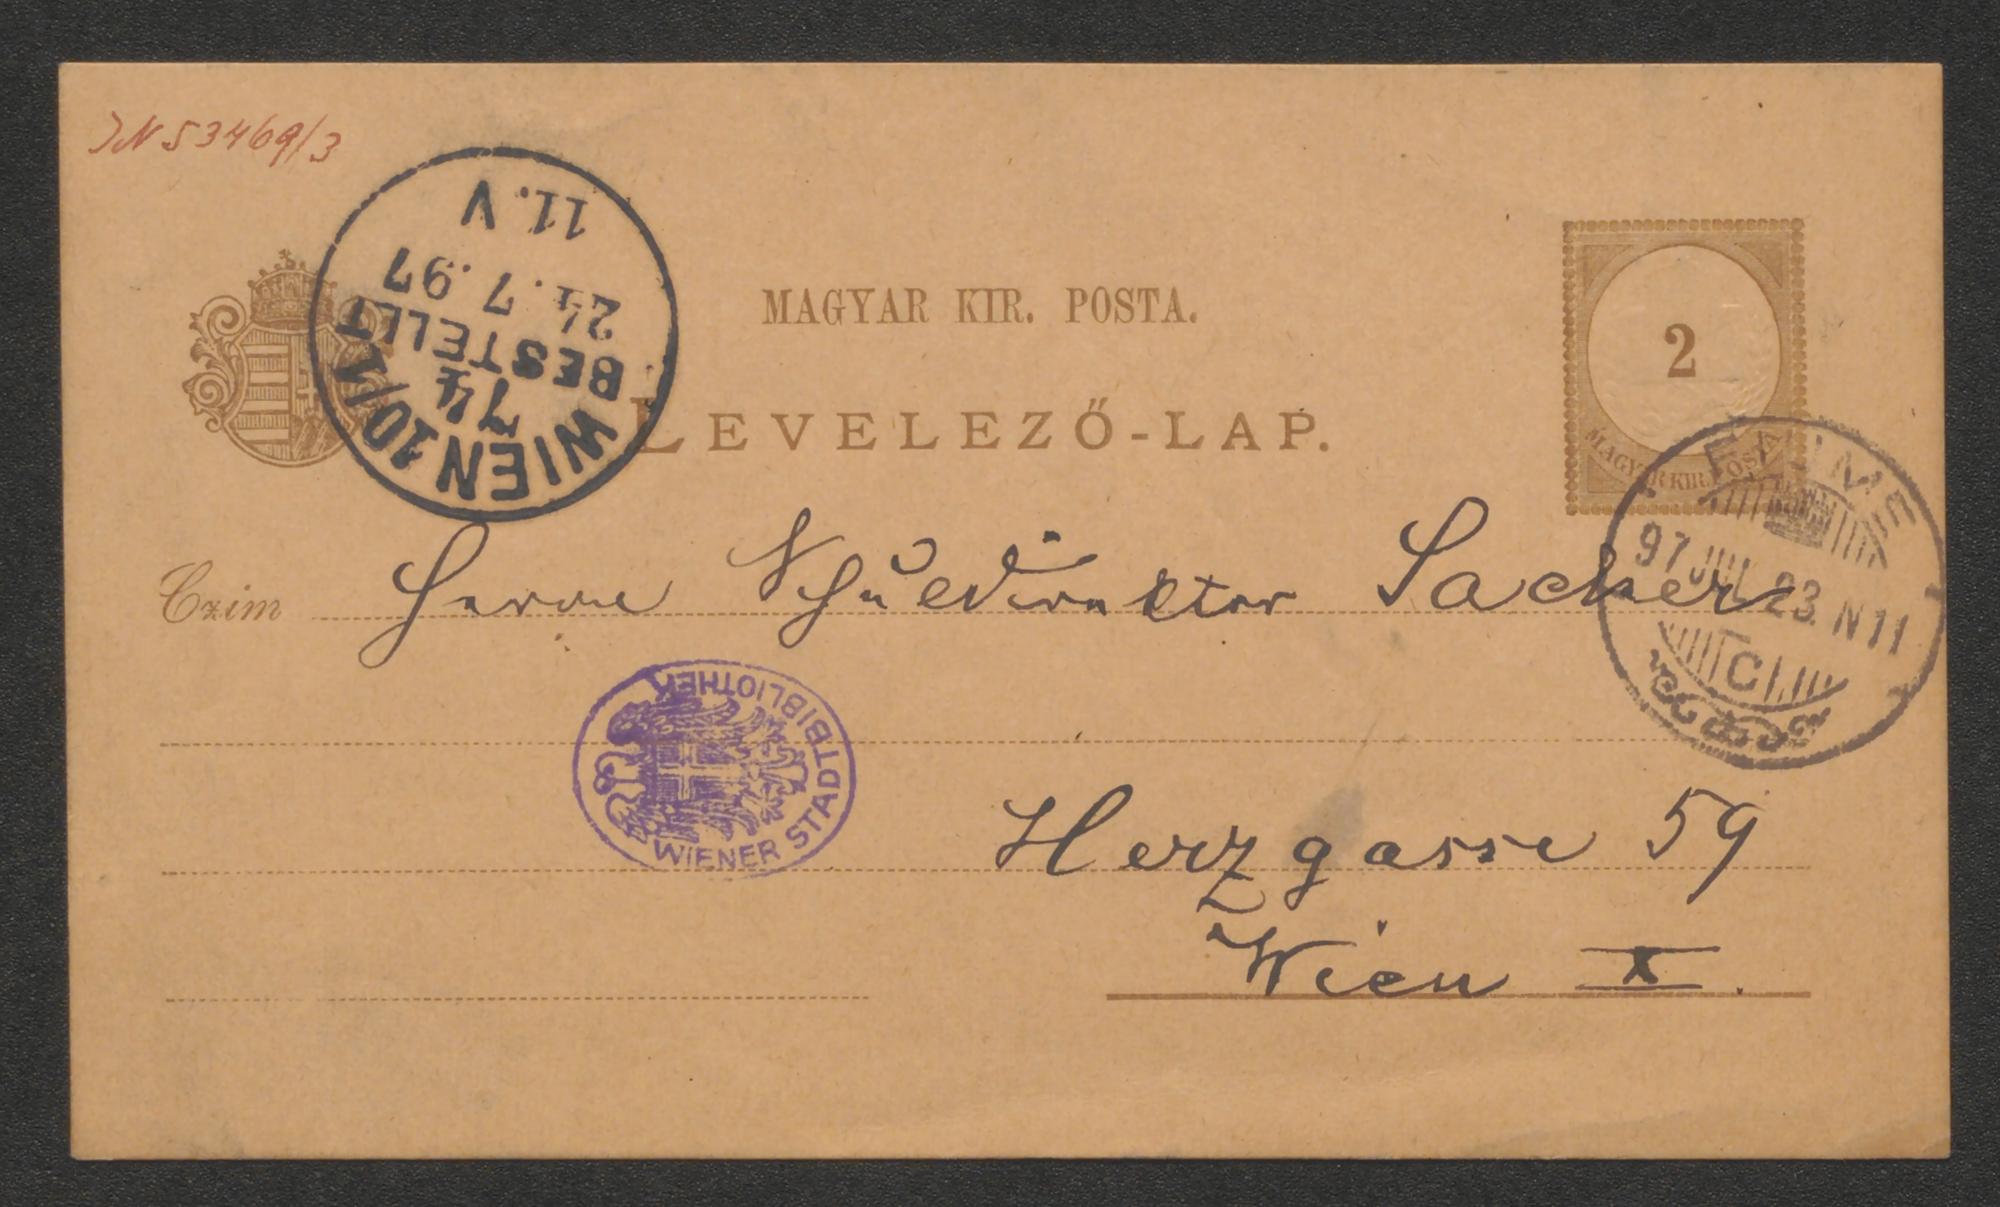 JN 53469/3
WIEN 10/1
74
BESTELLT
24.7.97
11.V
MAGYAR KIR. POSTA.
LEVELEZŐ-LAP.
2
MAGYAR KIR. POSTA
FIUME
97 JUL. 23. N 11
C
Czim Herrn Schuldirektor Sacher
WIENER STADTBIBLIOTHEK
Herzgasse 59
Wien X.